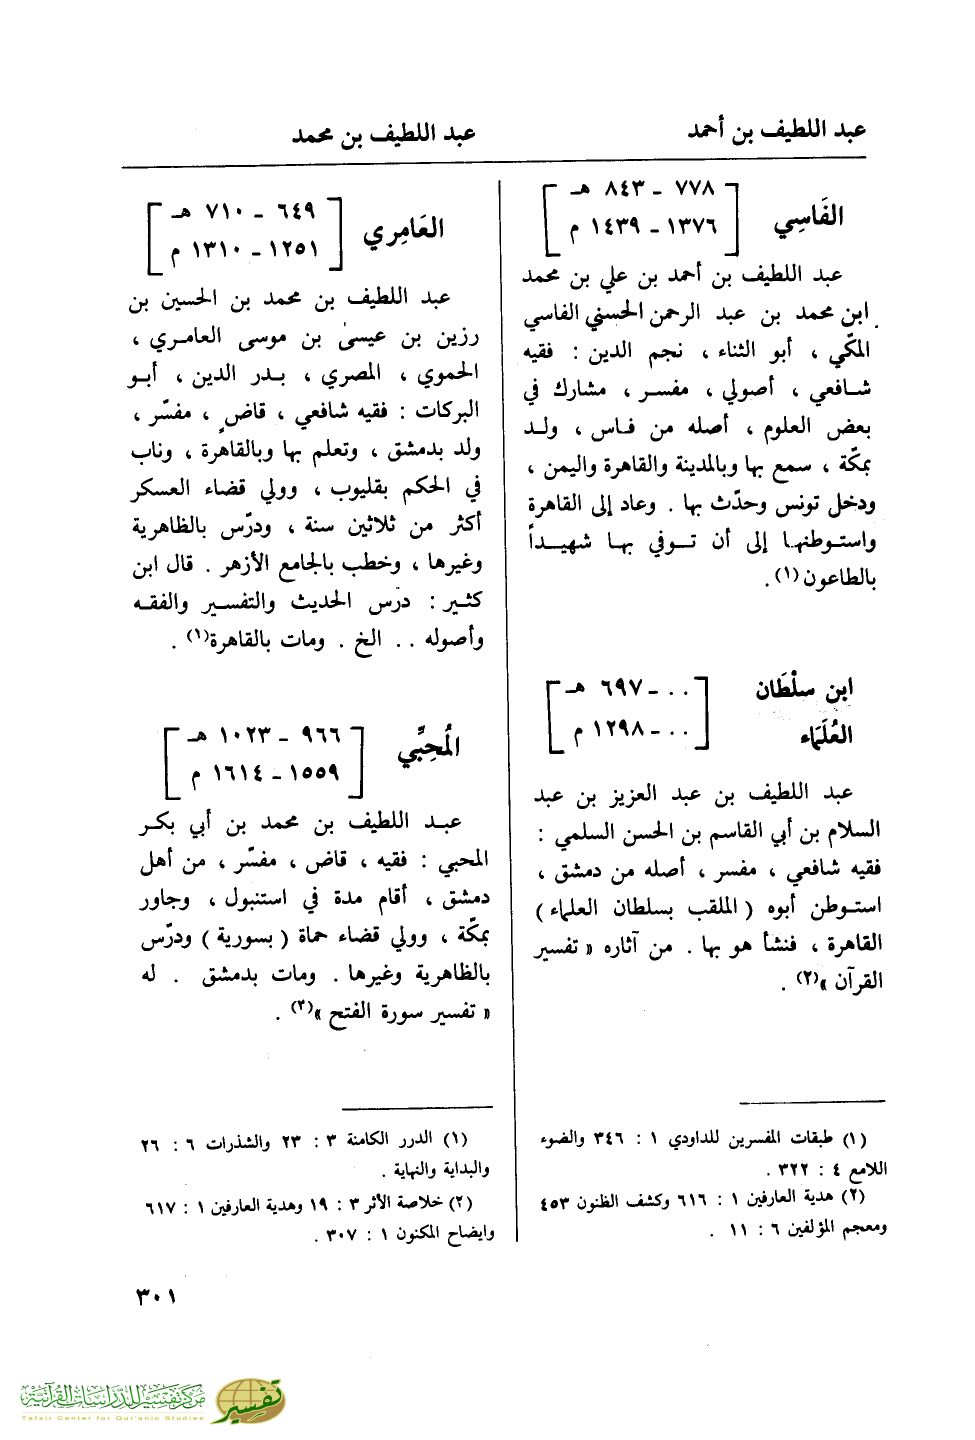 عبد اللطيف بن أحمد
عبد اللطيف بن محمد
الفَاسِي
[ ٧٧٨ - ٨٤٣ هـ
١٣٧٦ - ١٤٣٩ م ]
عبد اللطيف بن أحمد بن علي بن محمد
ابن محمد بن عبد الرحمن الحسني الفاسي
المكّي ، أبو الثناء ، نجم الدين : فقيه
شافعي ، أصولي ، مفسر ، مشارك في
بعض العلوم ، أصله من فاس ، ولد
بمكّة ، سمع بها وبالمدينة والقاهرة واليمن ،
ودخل تونس وحدّث بها . وعاد إلى القاهرة
واستوطنها إلى أن توفي بها شهيداً
بالطاعون (١) .
ابن سلْطَان
العُلَمَاء
[ . . - ٦٩٧ هـ
. . - ١٢٩٨ م ]
عبد اللطيف بن عبد العزيز بن عبد
السلام بن أبي القاسم بن الحسن السلمي :
فقيه شافعي ، مفسر ، أصله من دمشق ،
استوطن أبوه ( الملقب بسلطان العلماء )
القاهرة ، فنشأ هو بها . من آثاره « تفسير
القرآن »(٢) .
(١) طبقات المفسرين للداودي ١ : ٣٤٦ والضوء
اللامع ٤ : ٣٢٢ .
(٢) هدية العارفين ١ : ٦١٦ وكشف الظنون ٤٥٣
ومعجم المؤلفين ٦ : ١١ .
العَامِري
[ ٦٤٩ - ٧١٠ هـ
١٢٥١ - ١٣١٠ م ]
عبد اللطيف بن محمد بن الحسين بن
رزين بن عيسىٰ بن موسى العامري ،
الحموي ، المصري ، بدر الدين ، أبو
البركات : فقيه شافعي ، قاضٍ ، مفسّر ،
ولد بدمشق ، وتعلم بها وبالقاهرة ، وناب
في الحكم بقليوب ، وولي قضاء العسكر
أكثر من ثلاثين سنة ، ودرّس بالظاهرية
وغيرها ، وخطب بالجامع الأزهر . قال ابن
كثير : درس الحديث والتفسير والفقه
وأصوله . . الخ . ومات بالقاهرة(١) .
المُحِبِّي
[ ٩٦٦ - ١٠٢٣ هـ
١٥٥٩ - ١٦١٤ م ]
عبد اللطيف بن محمد بن أبي بكر
المحبي : فقيه ، قاض ، مفسّر ، من أهل
دمشق ، أقام مدة في استنبول ، وجاور
بمكّة ، وولي قضاء حماة ( بسورية ) ودرّس
بالظاهرية وغيرها . ومات بدمشق . له
« تفسير سورة الفتح »(٢) .
(١) الدرر الكامنة ٣ : ٢٣ والشذرات ٦ : ٢٦
والبداية والنهاية .
(٢) خلاصة الأثر ٣ : ١٩ وهدية العارفين ١ : ٦١٧
وايضاح المكنون ١ : ٣٠٧ .
٣٠١
مركز تفسير للدراسات القرآنية
Tafsir Center for Qur'anic Studies
تفسير